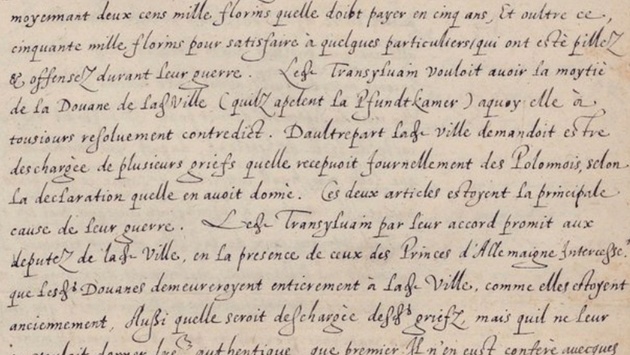 moyennant deux cens mille florins quelle doibt payer en cinq ans, Et oultre ce,
cinquante mille florins pour satisfaire à quelques particuliers qui ont esté pillez
& offensez durant leur guerre. Led. Transylvain vouloit avoir la moytié
de la Douane de lad. Ville (quilz apelent la Pfundtkamer) aquoy elle à
tousiours resoluement contredict. Daultrepart lad. ville demandoit estre
deschargée de plusieurs griefs quelle recepuoit journellement des Polonnois, selon
la declaration quelle en avoit donnè. Ces deux articles estoyent la principale
cause de leur guerre. Led. Transylvain par leur accord promit aux
deputez de lad. Ville, en la presence de ceux des Princes d'Allemaigne Intercess.rs
que lesd.s Douanes demeureroyent entierement à lad. Ville, comme elles estoyent
anciennement, Aussi quelle seroit deschargée desd.s griefz, mais quil ne leur
donner authentique, que premier Il n'en eust conferé avecques